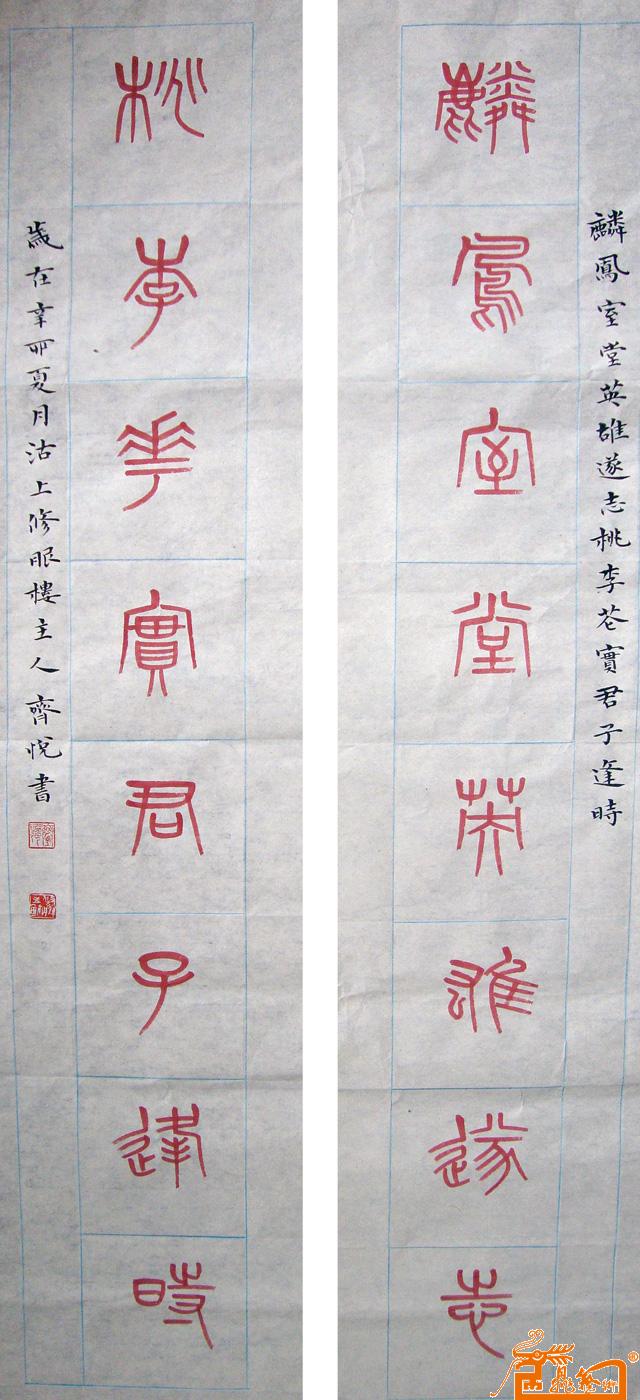 麟鳳室堂英雄遂志桃李花實君子逢時
麟鳳室堂英雄遂志
桃李華實君子逢時
歲在辛卯夏月沽上修眠樓主人齊悅書